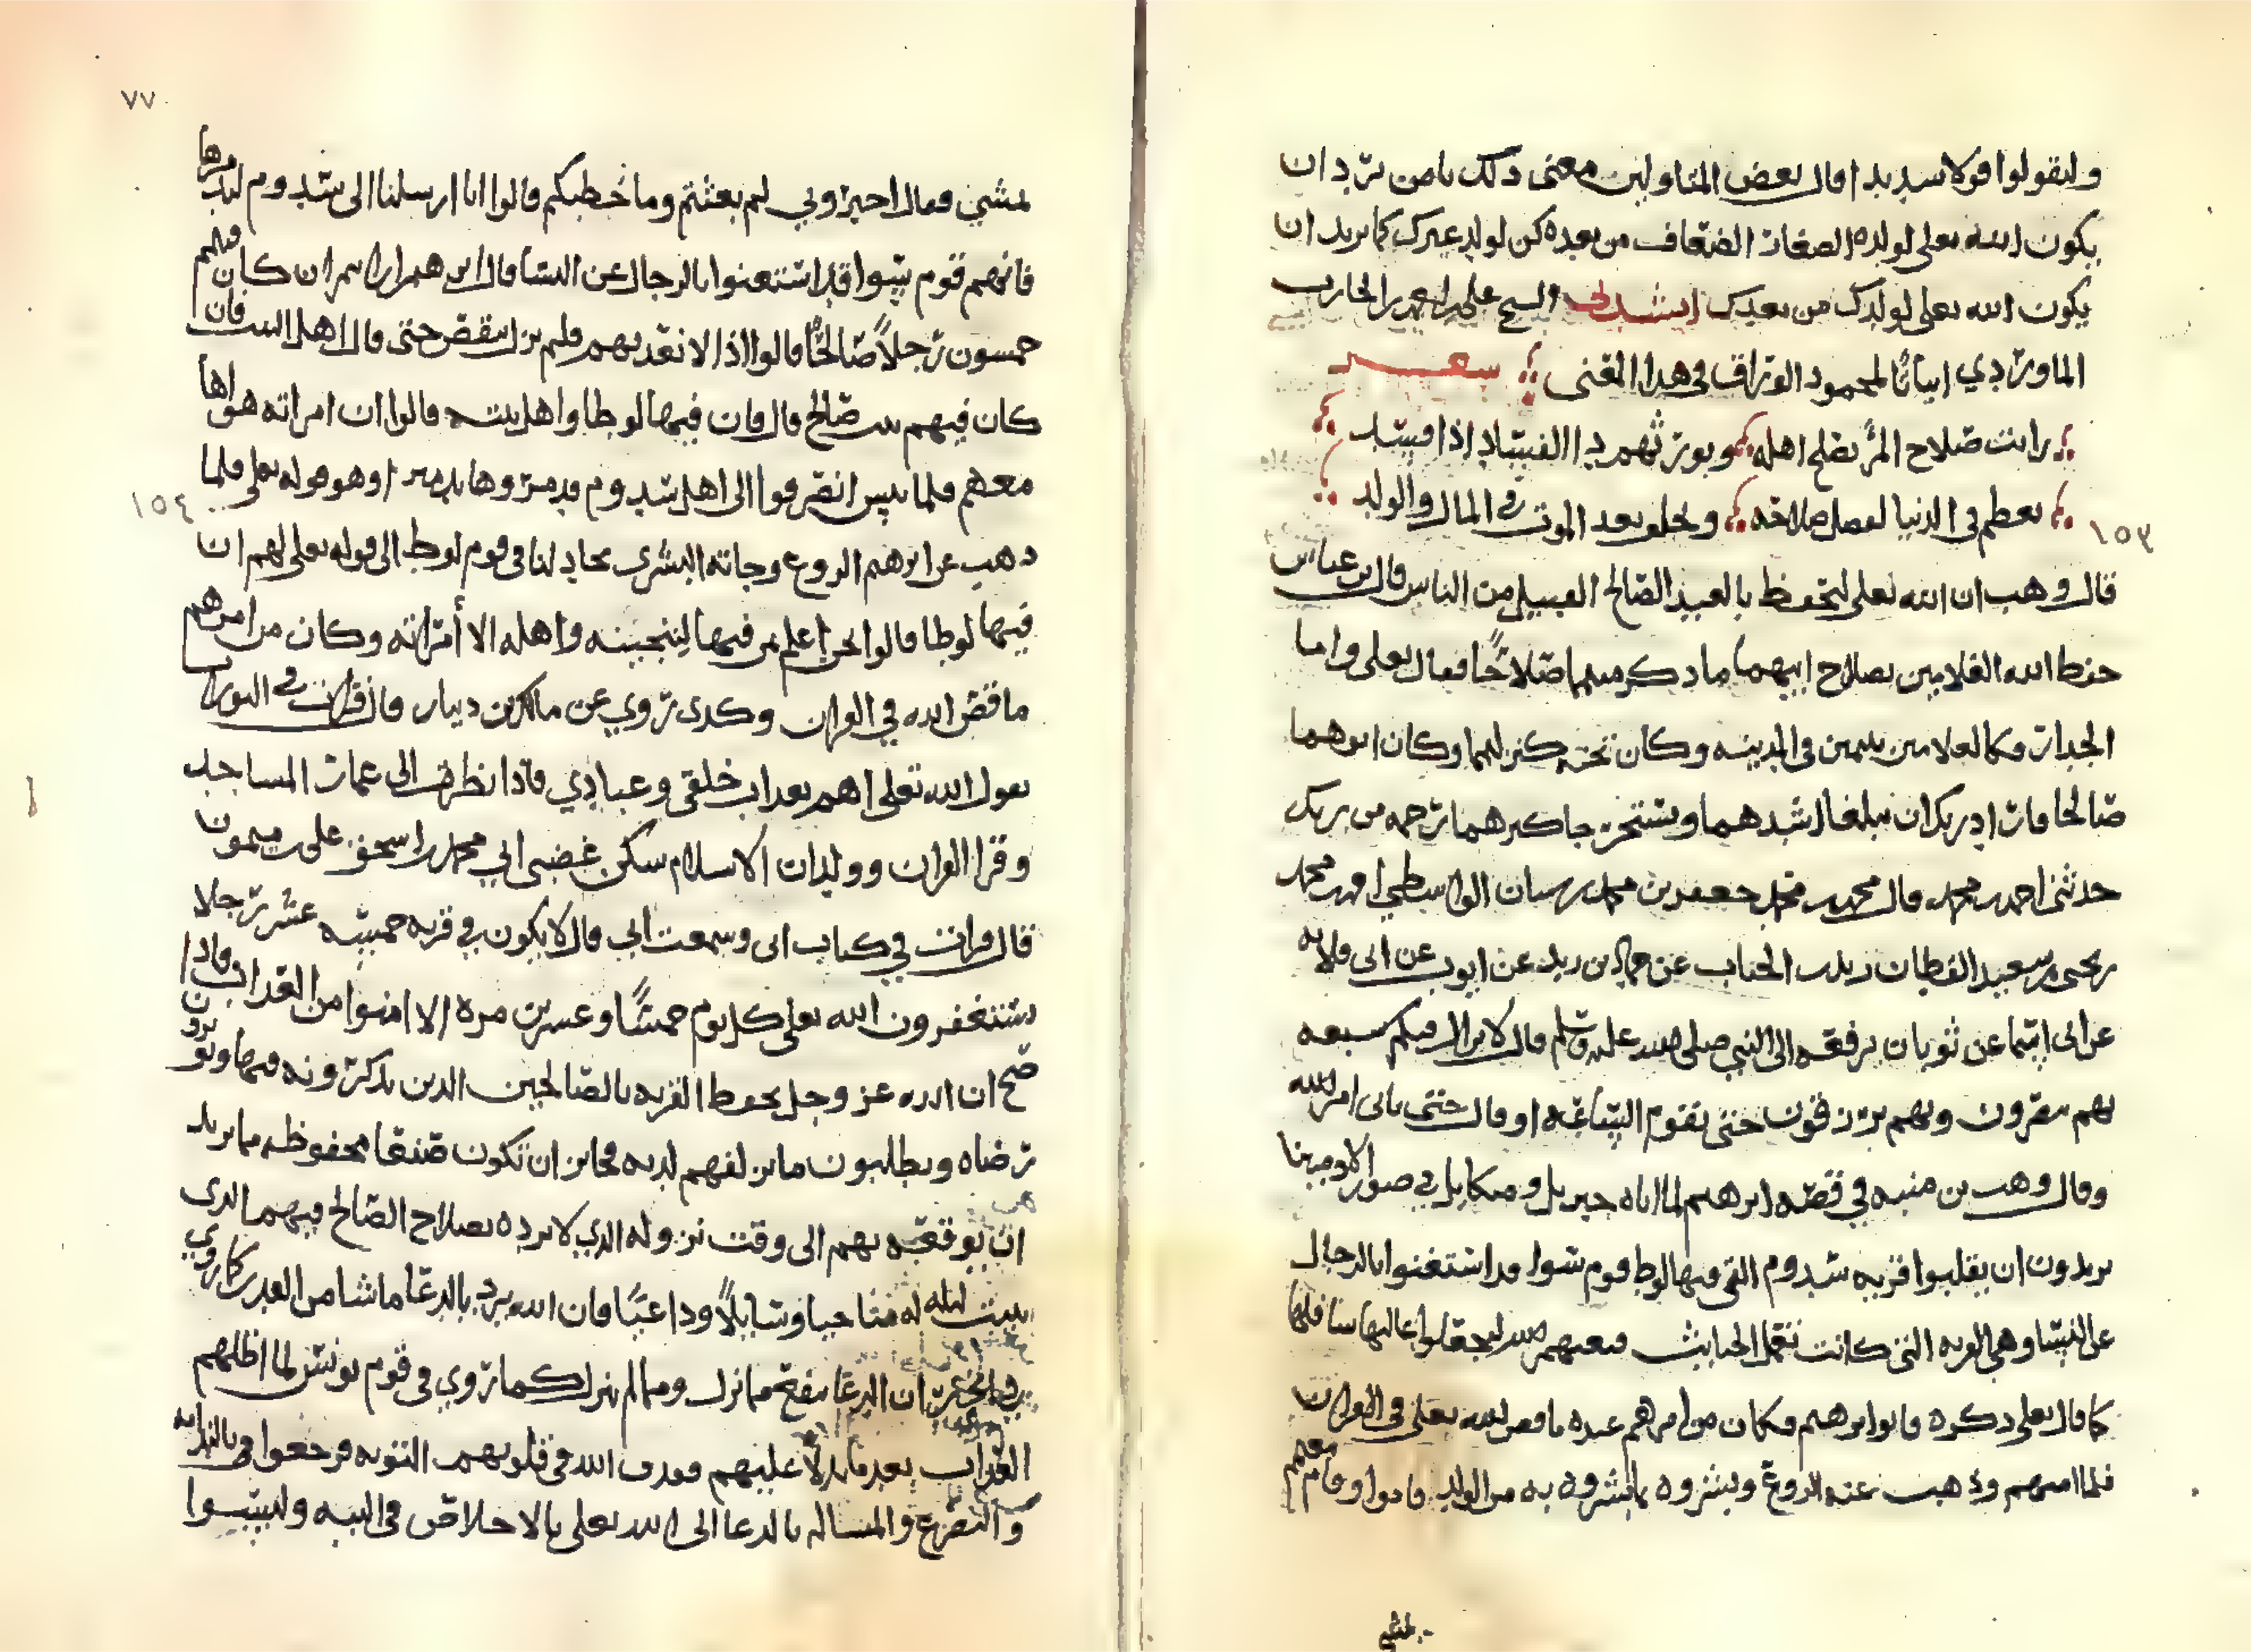 وليقولوا قولا سديدا قال بعض المتاولين معنى ذلك يا من يريد ان
يكون الله تعلى لولده الصغار الضعاف من بعده كن لولد غيرك كما تريد ان
يكون الله تعلى لولدك من بعدك انشدني الشيخ علي بن احمد بن
الماوردي ابياتا لمحمود الوراق في هذا المعنى شعر
رايت صلاح المرء يصلح اهله ويورثهم دا الفساد اذا فسد
يعظم في الدنيا لفضل صلاحه ويخلف بعد الموت في المال والولد
١٥٣
قال وهب ان الله تعلى ليحفظ بالعبد الصالح القبيل من الناس قال ابن عباس
حفظ الله الغلامين بصلاح ابيهما ما ذكر منهما صلاحا فقال تعلى واما
الجدار فكان لغلامين يتيمين في المدينه وكان تحته كنز لهما وكان ابوهما
صالحا فاراد ربك ان يبلغا اشدهما ويستخرجا كنزهما رحمه من ربك
حدثني احمد بن محمد قال محمد بن جعفر بن محمد بن الواسطي محمد
بن يحيى بن سعيد القطان زيد بن الحباب عن حماد بن زيد عن ايوب عن ابي قلابه
عن ابي اسما عن ثوبان يرفعه الى النبي صلى الله عليه وسلم قال لا يزال فيكم سبعه
بهم تنصرون وبهم ترزقون حتى تقوم الساعه او قال حتى ياتي امر الله
وقال وهب بن منبه في قصه ابرهيم لما اتاه جبريل وميكايل في صور الادميين
يريدون ان يقلبوا قريه سدوم التي فيها لوط قوم سوا قد استغنوا بالرجال
عن النسا وهي القريه التي كانت تعمل الخبايث فبعثهم الله ليجعلوا عاليها سافلها
كما قال تعلى ذكره فاتوا ابرهيم فكان من امرهم عنده ما قص الله تعلى في القران
فلما امنهم وذهب عنه الروع وبشروه بما بشروه به من الولد قاموا وقام معهم
يمشي
٧٧
يمشي فقال اخبروني لم بعثتم وما خطبكم قالوا انا ارسلنا الى سدوم لندمرها
فانهم قوم سوا قد استغنوا بالرجال عن النسا قال ابرهيم ان كان فيهم
خمسون رجلا صالحا قالوا اذا لا نعذبهم فلم يزل ينقص حتى قال اهل البيت فان
كان فيهم بيت صالح قال فان فيها لوطا واهل بيته قالوا ان امراته هواها
معهم فلما يئس انصرفوا الى اهل سدوم فدمروها تدميرا وهو قوله تعلى فلما
١٥٤
ذهب عن ابرهيم الروع وجاته البشرى يجادلنا في قوم لوط الى قوله تعلى لهم ان
فيها لوطا قالوا نحن اعلم بمن فيها لننجينه واهله الا امراته وكان من امرهم
ما قص الله في القران وكذى روي عن مالك بن دينار قال قرات في التوراه
يقول الله تعلى اهم بعذاب خلقي وعبادي فاذا نظرت الى عمار المساجد
وقرا القران وولدان الاسلام سكن غضبي ابي محمد بن اسحق علي بن ميمون
قال قرات في كتاب ابي وسمعت ابي قال لا يكون في قريه خمسه عشر رجلا
يستغفرون الله تعلى كل يوم خمسا وعشرين مره الا امنوا من العذاب فاذا
صح ان الله عز وجل يحفظ القريه بالصالحين الذين يذكرونه فيها ويوثرون
رضاه ويطلبون ما يزلفهم لديه فجايز ان تكون صنعا محفوظه مما يريد
ان يوقعه بهم الى وقت نزوله الذي لا يرده بصلاح الصالح فيهم الذي
يبيت ليله لله مناجيا وسايلا وداعيا فان الله يرد بالدعا ما شا من القدر كما روي
ان الدعا ينفع مما نزل ومما لم ينزل كما روي في قوم يونس لما اظلهم
العذاب بعد عليهم فقذف الله في قلوبهم التوبه فرجعوا
والتضرع والمساله بالدعا الى الله تعلى بالاخلاص في النيه ولبسوا